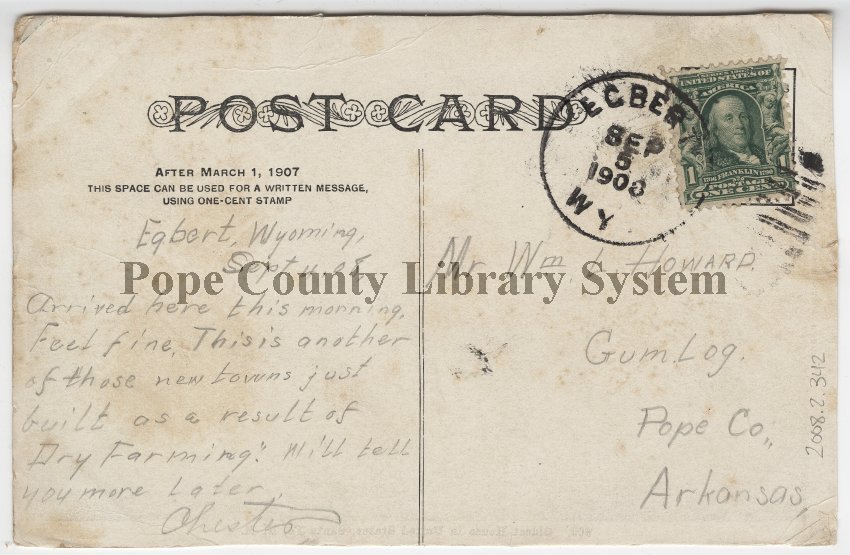 POST CARD
AFTER MARCH 1, 1907
THIS SPACE CAN BE USED FOR A WRITTEN MESSAGE,
USING ONE-CENT STAMP
Egbert, Wyoming,
Sept 4, 08
Arrived here this morning.
Feel fine, This is another
of those new towns just
built as a result of
Dry Farming". Will tell
you more later.
Chester
EGBER
SEP
5
1908
WY
SERIES 1902
UNITED STATES OF
AMERICA
1 1706 FRANKLIN 1790 1
POSTAGE
ONE CENT
Mr. Wm. Howard.
Gum Log.
Pope Co.,
Arkansas,
2008.2.342
Pope County Library System
Oldest House in United States, Santa